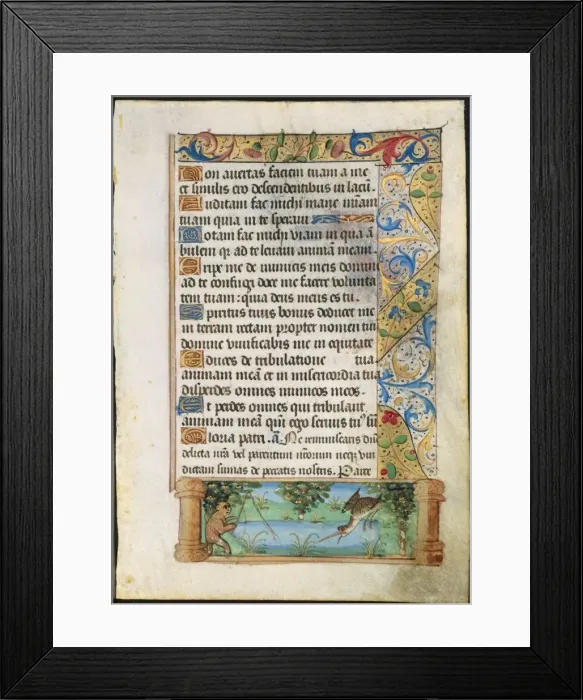 Non auertas faciem tuam a me
et similis ero descendentibus in lacu.
Auditam fac michi mane mīam
tuam quia in te speraui
Notam fac michi viam in qua ā
bulem qr ad te leuaui animā meam
Eripe me de inimicis meis domine
ad te confugi doce me facere volunta
tem tuam : quia deus meus es tu.
Spiritus tuus bonus deducet me
in terram rectam propter nomen tuū
domine viuificabis me in equitate
Educes de tribulatione tua
animam meā et in misericordia tua
disperdes omnes inimicos meos.
Et perdes omnes qui tribulant
animam meā qm̄ ego seruus tuꝰ sū
Gloria patri . ā. Ne reminiscaris dn̄e
delicta nr̄a vel parentum nr̄orum neqꝫ vin
dictam sumas de peccatis nostris. Parce